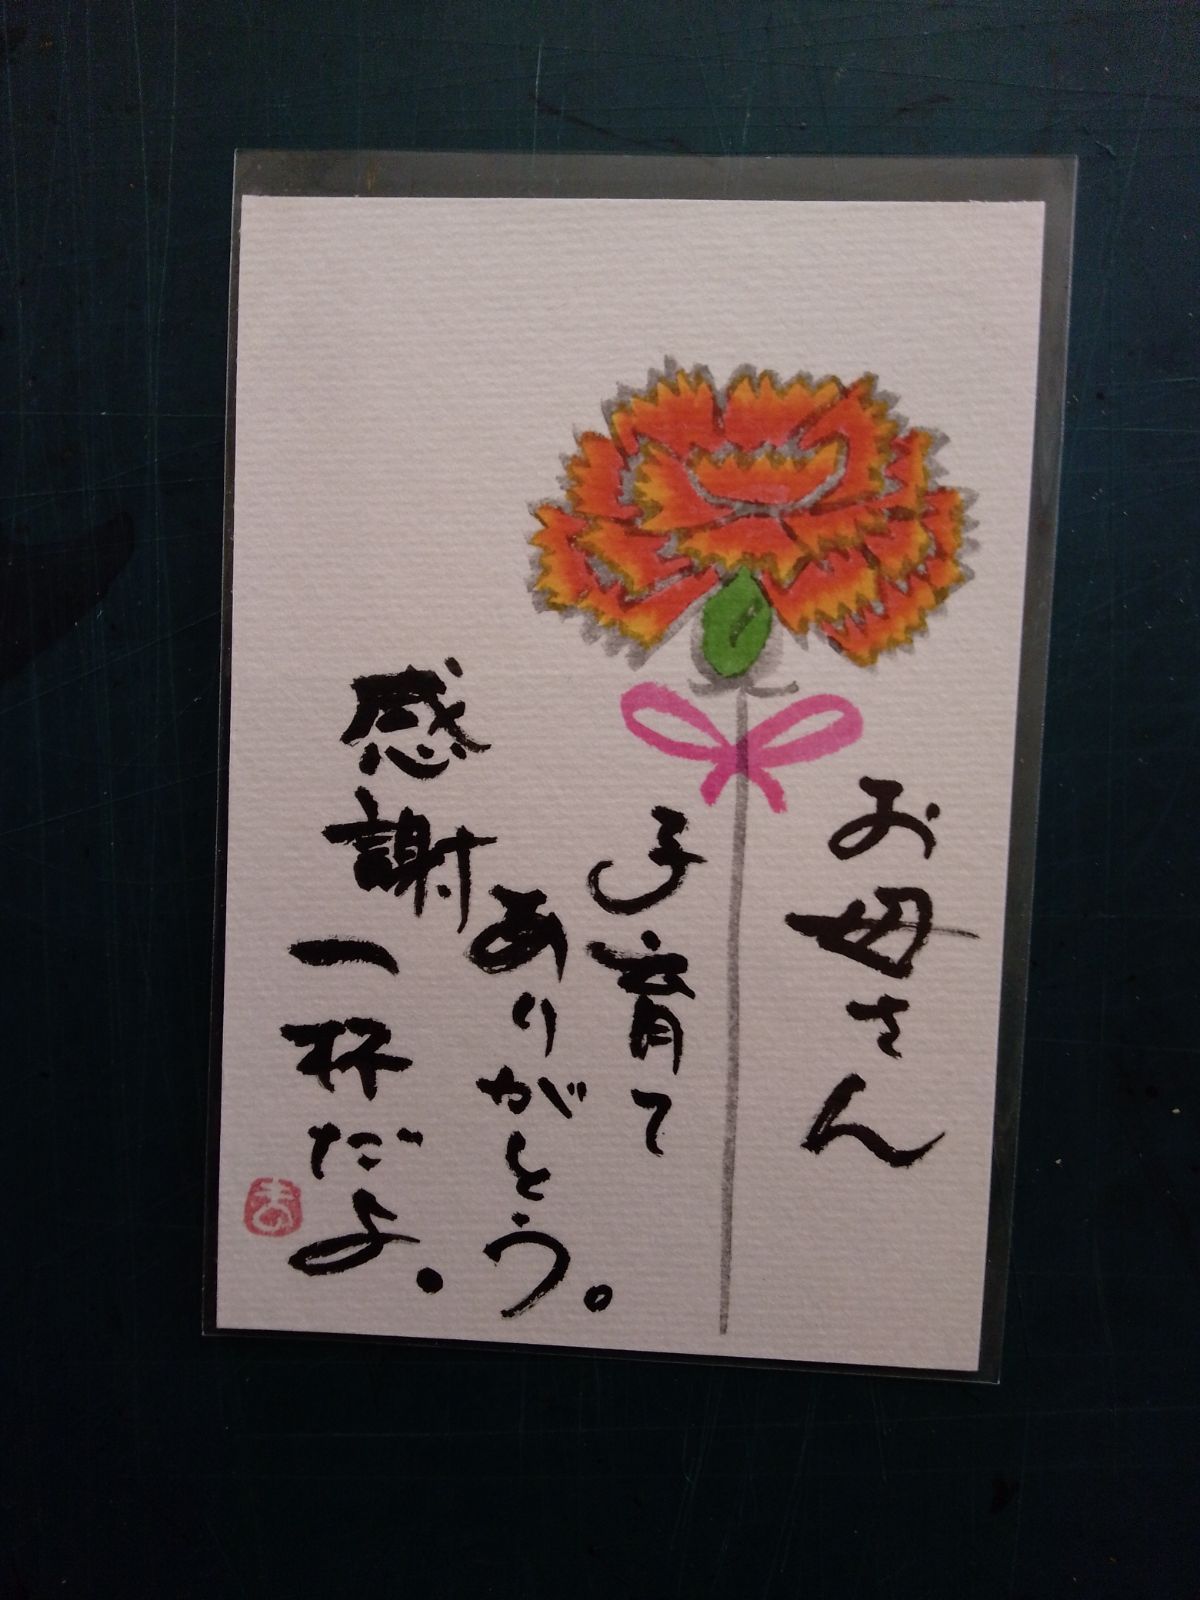 お母さん
子育て
ありがとう。
感謝
一杯だよ.